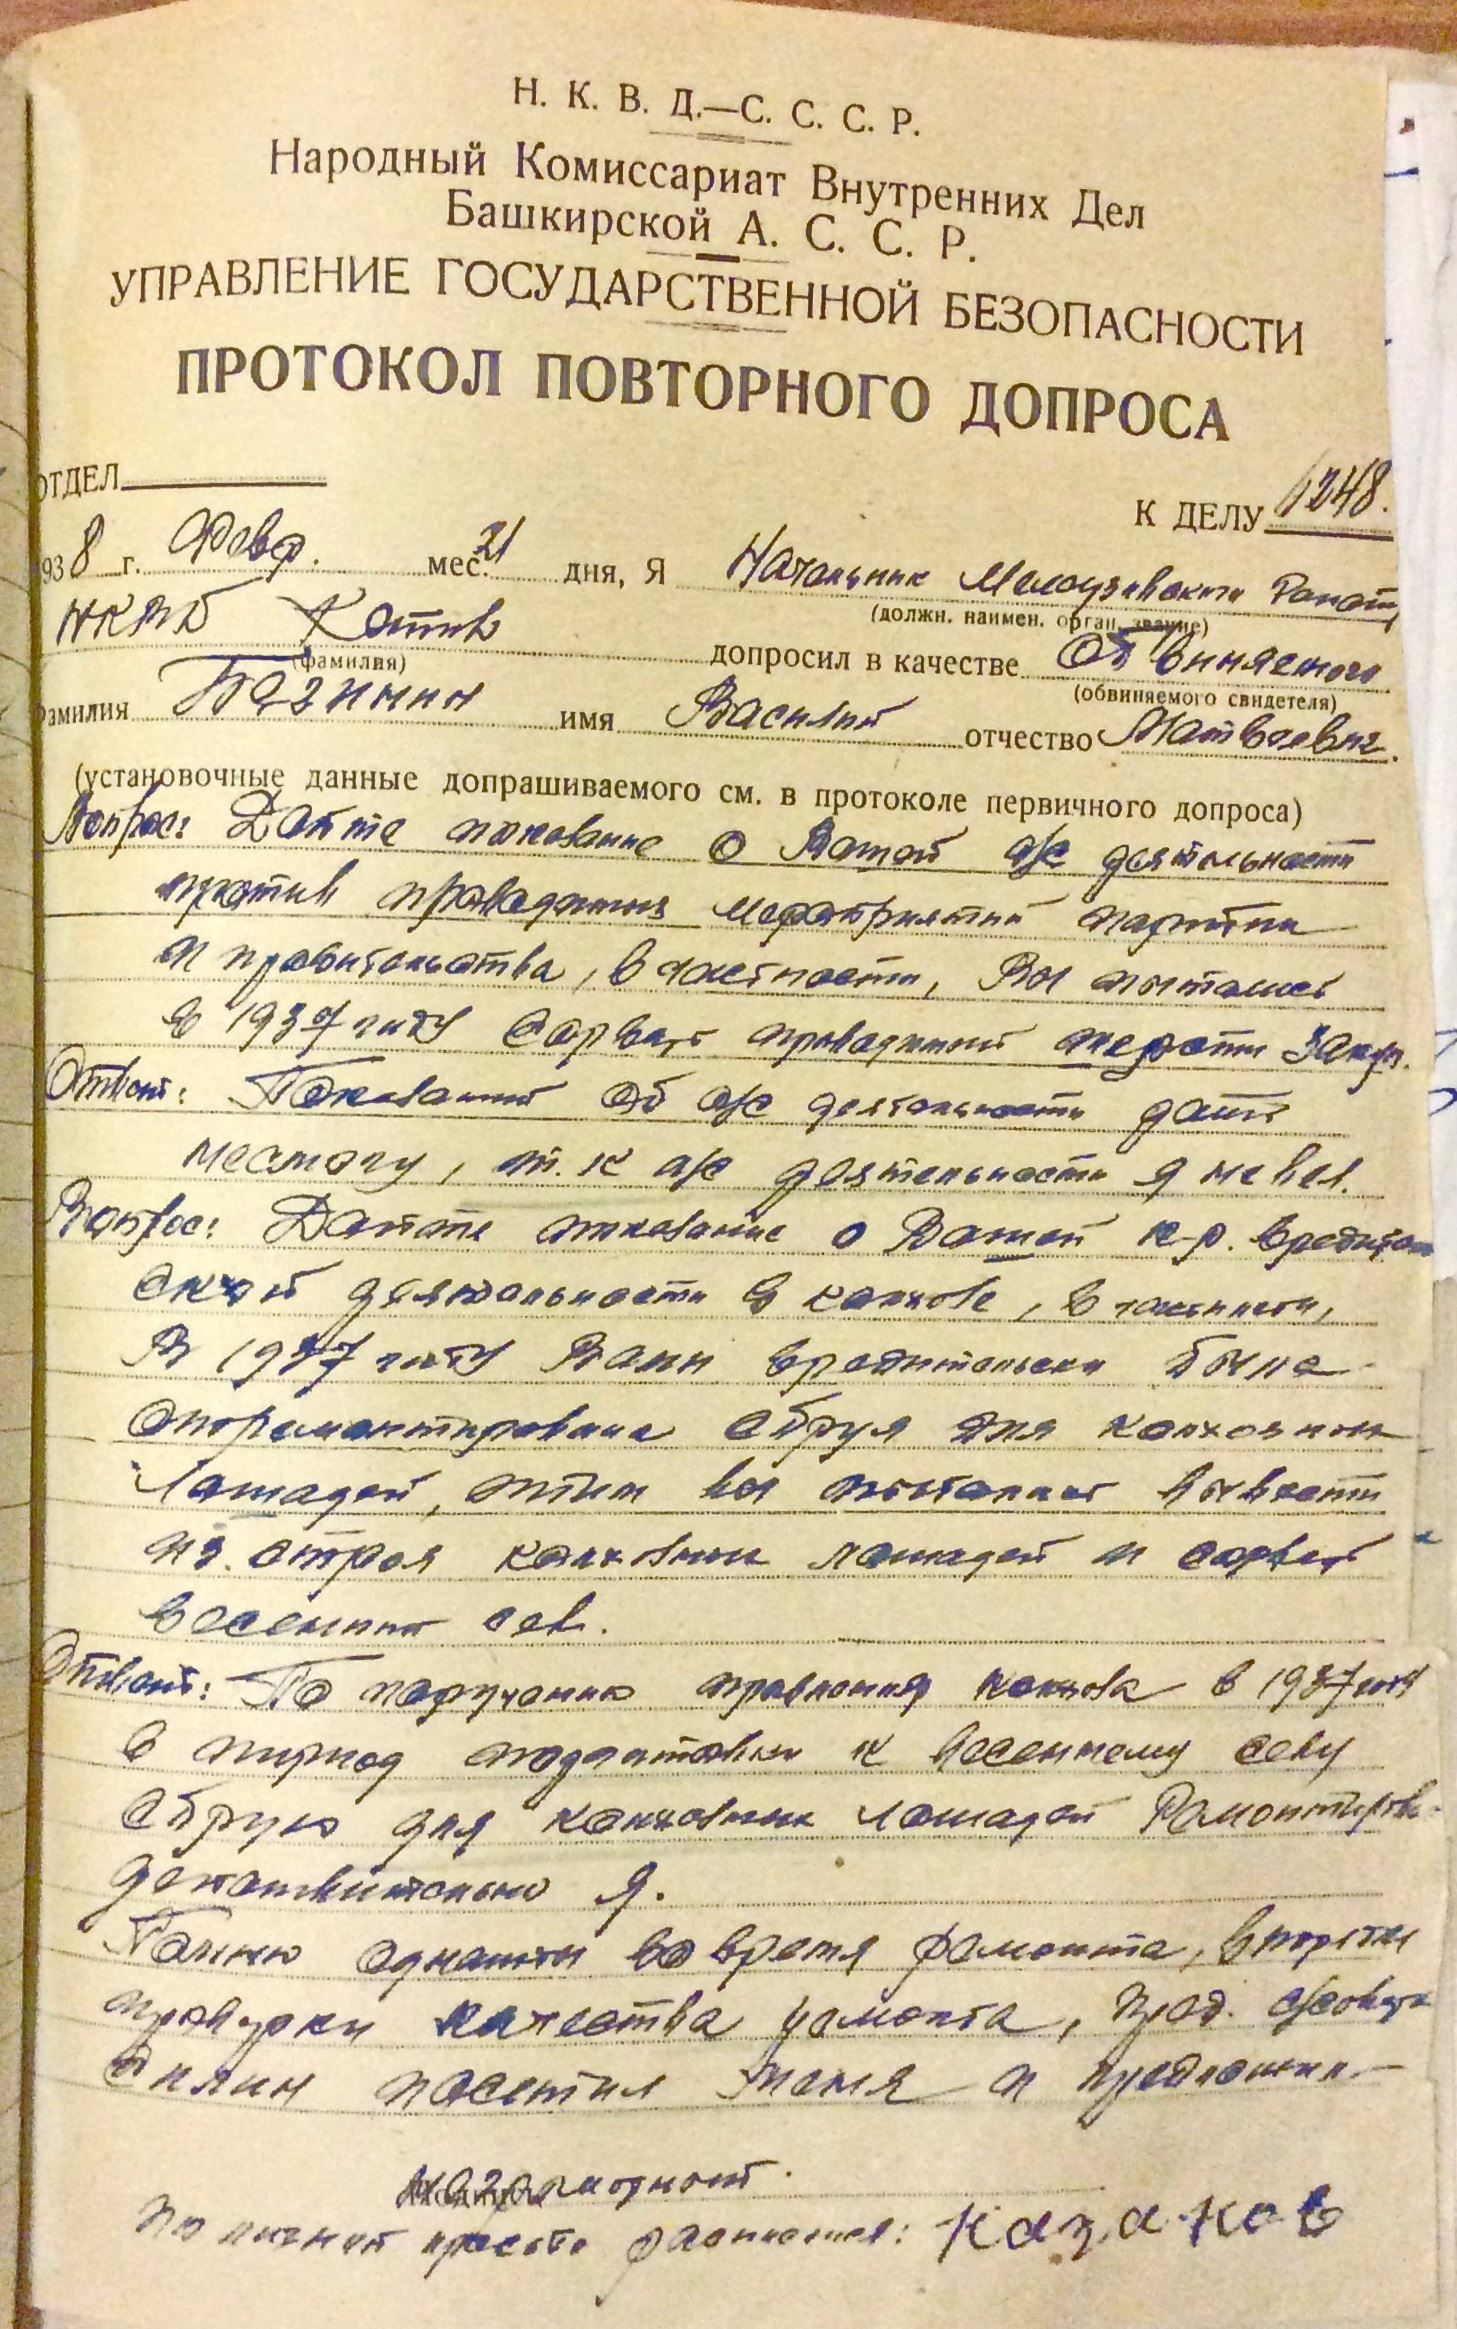 Н. К. В. Д.—С. С. С. Р.
Народный Комиссариат Внутренних Дел
Башкирской А. С. С. Р.
УПРАВЛЕНИЕ ГОСУДАРСТВЕННОЙ БЕЗОПАСНОСТИ
ПРОТОКОЛ ПОВТОРНОГО ДОПРОСА
ОТДЕЛ
К ДЕЛУ 6248.
1938 г. Февр. мес. 21 дня, Я Начальник
(должн. наимен. орган, звание)
НКВД
(фамилия)
допросил в качестве Обвиняемого
(обвиняемого свидетеля)
фамилия имя Василий отчество Матвеевич.
(установочные данные допрашиваемого см. в протоколе первичного допроса)
Вопрос: Дайте показание о Вашей а/с деятельности
против проведения мероприятий партии
и правительства, в частности, Вы пытались
в 1937 году сорвать проводимой
Ответ: Показаний об а/с деятельности дать
немогу, т.к а/с деятельности я не вел.
Вопрос: Дайте показание о Вашей к-р. вредитель
ской деятельности в колхозе, в частности,
В 1937 году Вами вредительски была
отремонтирована сбруя для колхозных
лошадей, этим вы пытались вывести
из строя колхозных лошадей и сорвать
весенний сев.
Ответ: По поручению правления колхоза в 1937 году
в период подготовки к весеннему севу
сбрую для колхозных лошадей Ремонтировал
действительно я.
Помню однажды во время ремонта, в порядке
проверки качества ремонта, пред. с/совета
посетил меня и предложил
неграмотной.
По личной просьбе расписался: Казаков